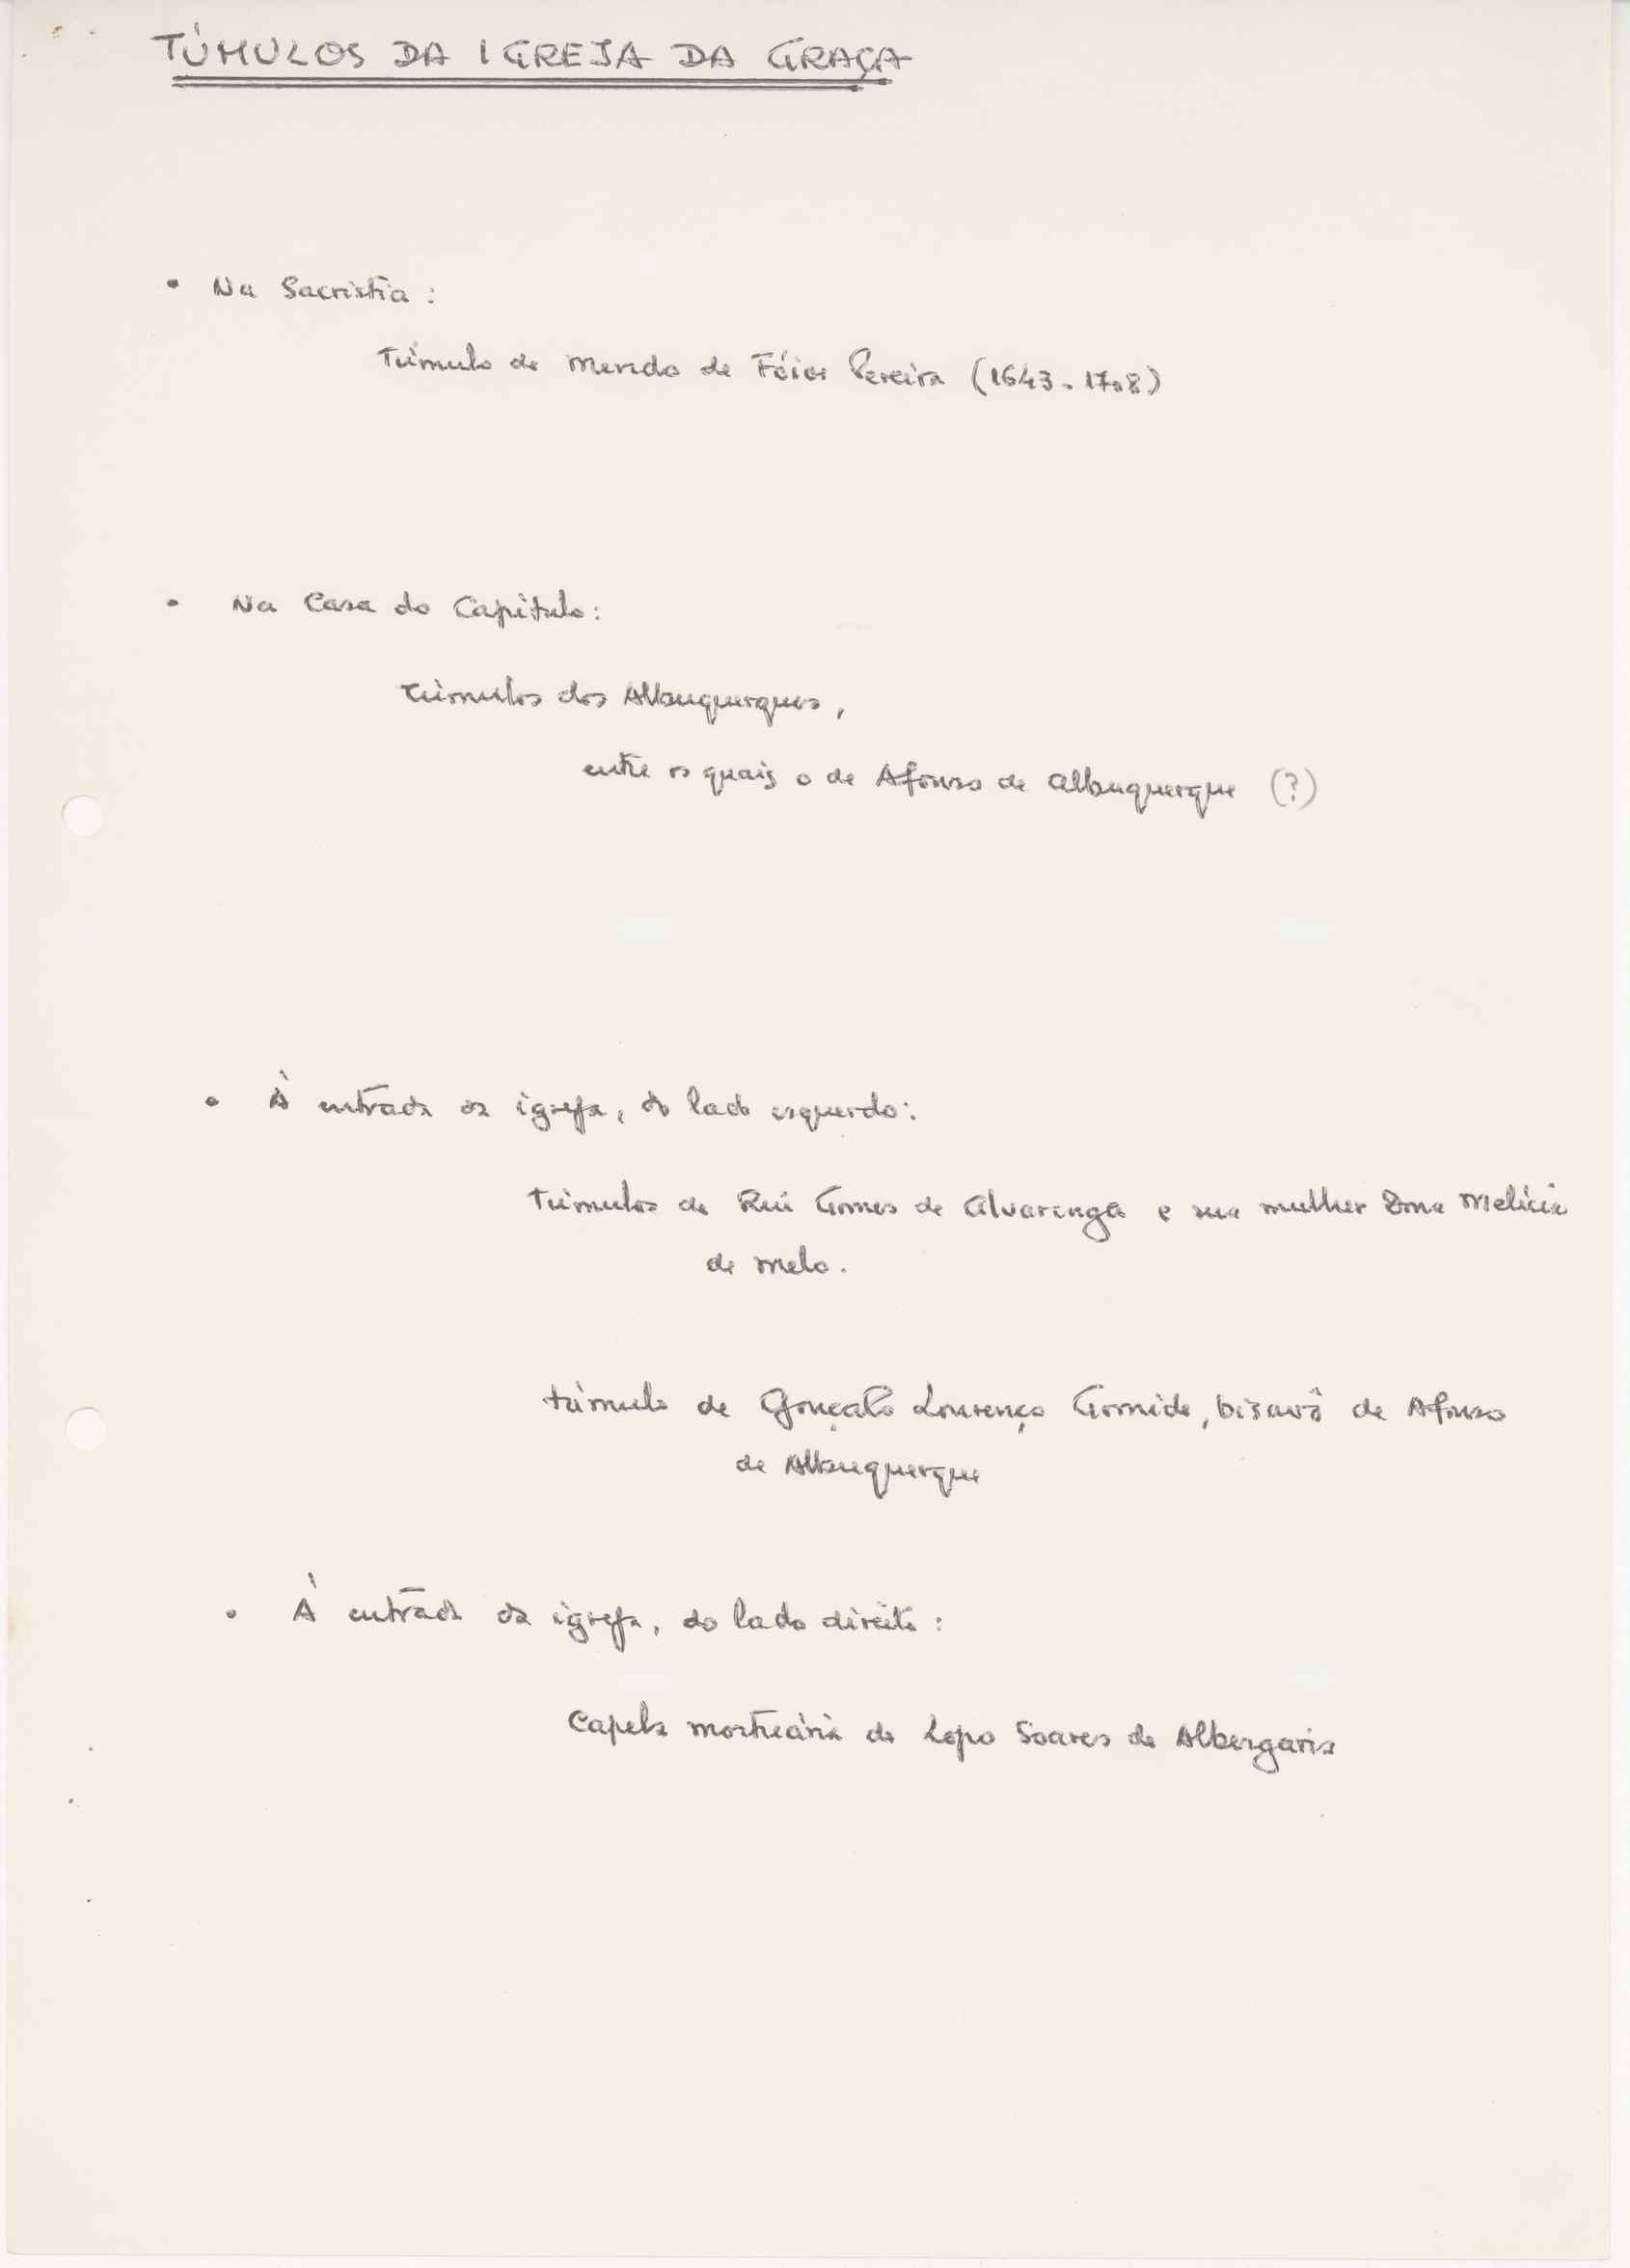 TÚMULOS DA IGREJA DA GRAÇA
• Na Sacristia :
Túmulo de Mendo de Fóios Pereira (1643-1708)
• Na Casa do Capítulo:
Túmulos dos Albuquerques,
entre os quais o de Afonso de Albuquerque (?)
• À entrada da igreja, do lado esquerdo:
Túmulos de Rui Gomes de Alvarenga e sua mulher Dona Melícia
de Melo.
túmulo de Gonçalo Lourenço Gomide, bisavô de Afonso
de Albuquerque
• À entrada da igreja, do lado direito :
Capela mortuária de Lopo Soares de Albergaria